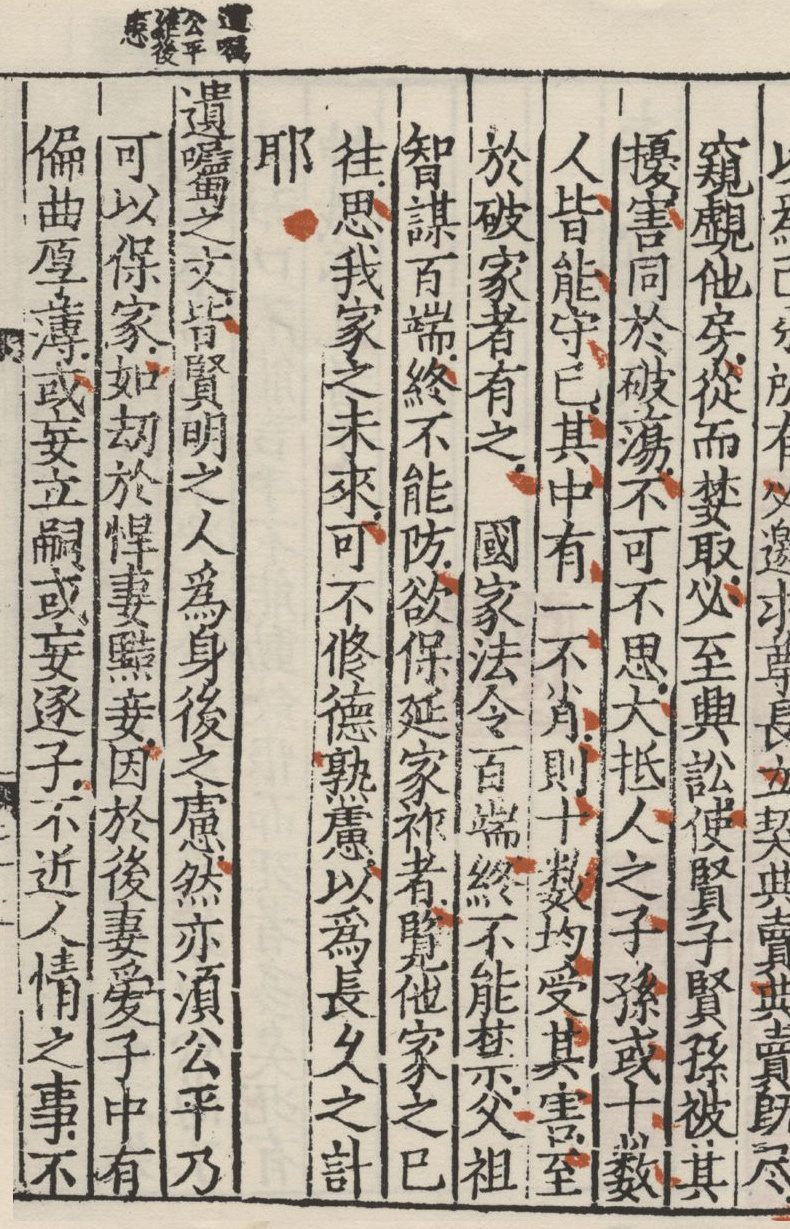 以爲己分所有必邀求尊長立契典賣典賣既尽
窺覷他房從而婪取必至興訟使賢子賢孫被其
擾害同於破蕩不可不思大抵人之子孫或十数
人皆能守己其中有一不肖則十数均受其害至
於破家者有之　國家法令百端終不能禁父祖
智謀百端終不能防欲保延家祚者覽他家之已
往思我家之未來可不修德熟慮以爲長久之計
耶
遺嘱公平維後患
遺囑之文皆賢明之人爲身後之慮然亦湏公平乃
可以保家如刼於悍妻黠妾因於後妻愛子中有
偏曲厚薄或妄立嗣或妄逐子不近人情之事不